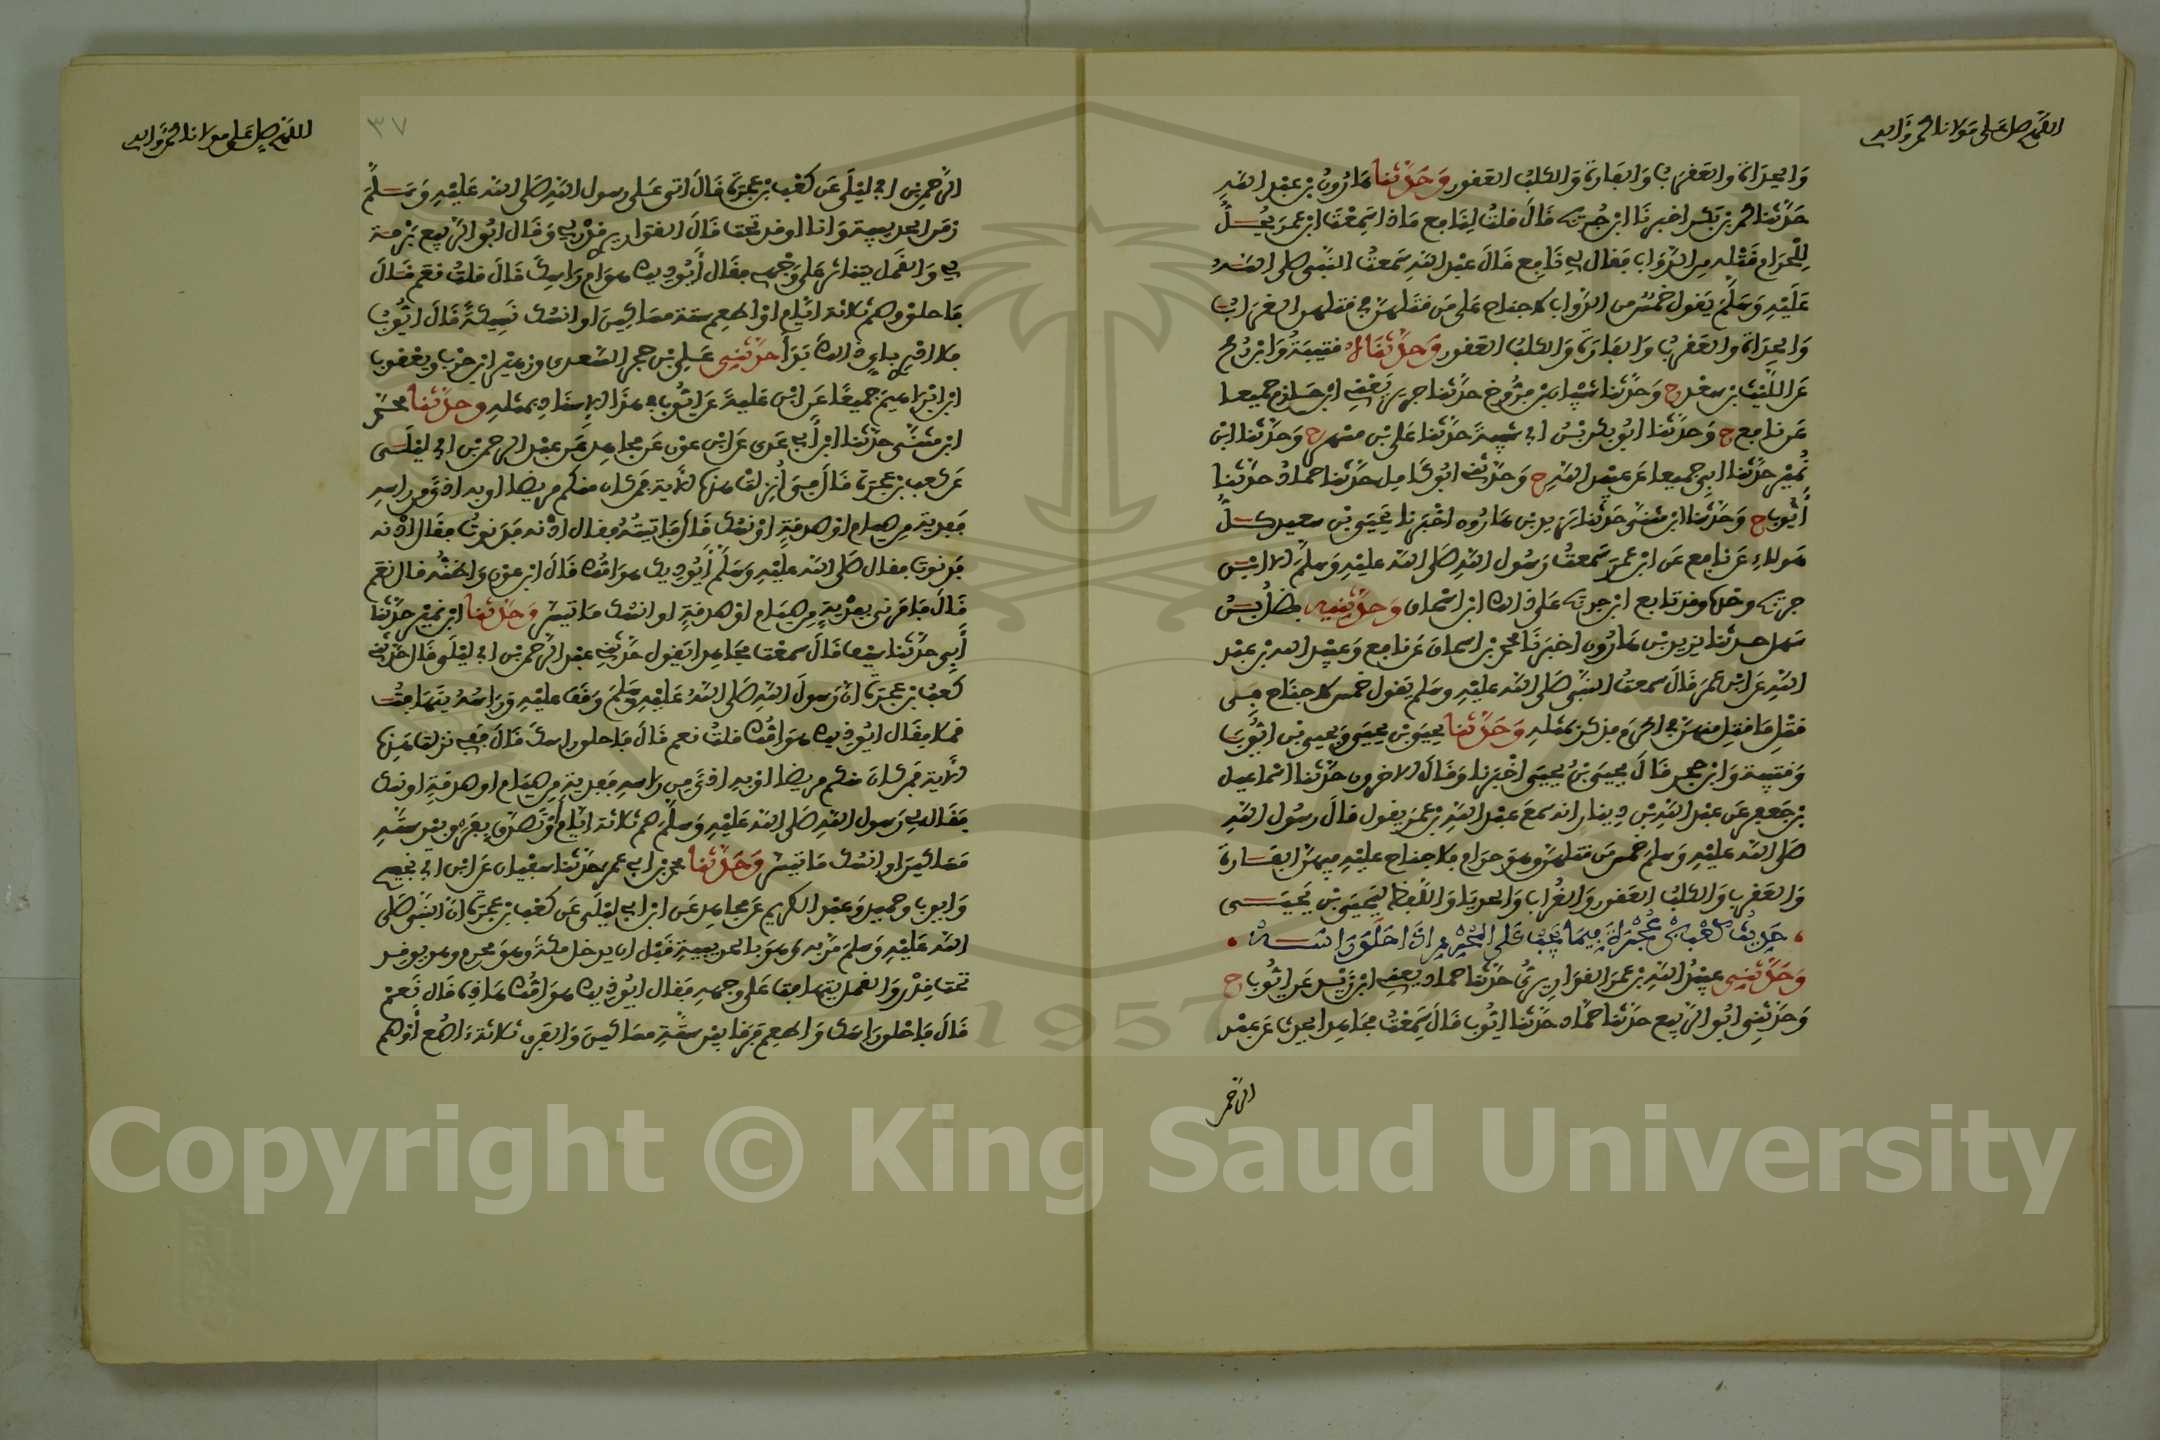 اللهم صل على مولانا محمد وآله
والحدأة والعقرب والفارة والكلب العقور وحدثنا هارون بن عبد الله
حدثنا محمد بن بكر اخبرنا ابن جريج قال قلت لنافع ماذا سمعت ابن عمر يحل
للحرام قتله من الدواب فقال لي نافع قال عبد الله سمعت النبي صلى الله
عليه وسلم يقول خمس من الدواب لا جناح على من قتلهن في قتلهن الغراب
والحدأة والعقرب والفارة والكلب العقور وحدثناه قتيبة وابن رمح
عن الليث بن سعد ح وحدثنا شيبان بن فروخ حدثنا جرير يعني ابن حازم جميعا
عن نافع ح وحدثنا ابو بكر بن ابي شيبة حدثنا علي بن مسهر ح وحدثنا ابن
نمير حدثنا ابي جميعا عن عبيد الله ح وحدثني ابو كامل حدثنا حماد حدثنا
أيوب ح وحدثنا ابن مثنى حدثنا يزيد بن هارون اخبرنا يحيى بن سعيد كل
هولاء عن نافع عن ابن عمر سمعت رسول الله صلى الله عليه وسلم الا ابن
جريج وحده وقد تابع ابن جريج على ذلك ابن اسحاق وحدثنيه فضل بن
سهل حدثنا يزيد بن هارون اخبرنا محمد بن اسحاق عن نافع وعبيد الله بن عبد
الله عن ابن عمر قال سمعت النبي صلى الله عليه وسلم يقول خمس لا جناح في
قتل ما قتل منهن في الحرم فذكر بمثله وحدثنا يحيى بن يحيى ويحيى بن ايوب
وقتيبة وابن حجر قال يحيى بن يحيى اخبرنا وقال الاخرون حدثنا اسماعيل
بن جعفر عن عبد الله بن دينار انه سمع عبد الله بن عمر يقول قال رسول الله
صلى الله عليه وسلم خمس من قتلهن وهو حرام فلا جناح عليه فيهن الفارة
والعقرب والكلب العقور والغراب والحديا واللفظ ليحيى بن يحيى
حديث كعب بن عجرة فيما يجب على المحرم اذا حلق راسه
وحدثني عبيد الله بن عمر القواريري حدثنا حماد يعني ابن زيد عن ايوب ح
وحدثني ابو الربيع حدثنا حماد حدثنا ايوب قال سمعت مجاهدا يحدث عن عبد
الرحمن
اللهم صل على مولانا محمد وآله
٣٧
الرحمن بن ابي ليلى عن كعب بن عجرة قال اتى على رسول الله صلى الله عليه وسلم
زمن الحديبية وانا اوقد تحت قال القواريري قدر لي وقال ابو الربيع برمة
لي والقمل يتناثر على وجهي فقال أيوذيك هوام راسك قال قلت نعم قال
فاحلق وصم ثلاثة ايام او اطعم ستة مساكين او انسك نسيكة قال ايوب
فلا ادري باي ذلك بدأ حدثني علي بن حجر السعدي وزهير بن حرب ويعقوب
ابن ابراهيم جميعا عن ابن علية عن ايوب في هذا الاسناد بمثله وحدثنا محمد
ابن مثنى حدثنا ابن أبي عدي عن ابن عون عن مجاهد عن عبد الرحمن بن ابي ليلى
عن كعب بن عجرة قال في أنزلت هذه الآية فمن كان منكم مريضا او به اذى من راسه
ففدية من صيام او صدقة او نسك قال فاتيته فقال ادنه فدنوت فقال ادنه
فدنوت فقال صلى الله عليه وسلم أيوذيك هوامك قال ابن عون واظنه قال نعم
قال فامرني بفدية من صيام او صدقة او نسك ما تيسر وحدثنا ابن نمير حدثنا
أبي حدثنا سيف قال سمعت مجاهدا يقول حدثني عبد الرحمن بن ابي ليلى قال حدثني
كعب بن عجرة ان رسول الله صلى الله عليه وسلم وقف عليه وراسه يتهافت
قملا فقال ايوذيك هوامك قلت نعم قال فاحلق راسك قال ففي نزلت هذه
الآية فمن كان منكم مريضا او به اذى من راسه ففدية من صيام او صدقة او نسك
فقال لي رسول الله صلى الله عليه وسلم صم ثلاثة ايام أو تصدق بفرق بين ستة
مساكين او انسك ما تيسر وحدثنا محمد بن ابي عمر حدثنا سفيان عن ابن ابي نجيح
وايوب وحميد وعبد الكريم عن مجاهد عن ابن ابي ليلى عن كعب بن عجرة ان النبي صلى
الله عليه وسلم مر به وهو بالحديبية قبل ان يدخل مكة وهو محرم وهو يوقد
تحت قدر والقمل يتهافت على وجهه فقال ايوذيك هوامك هذه قال نعم
قال فاحلق راسك واطعم فرقا بين ستة مساكين والفرق ثلاثة اصع أو صم